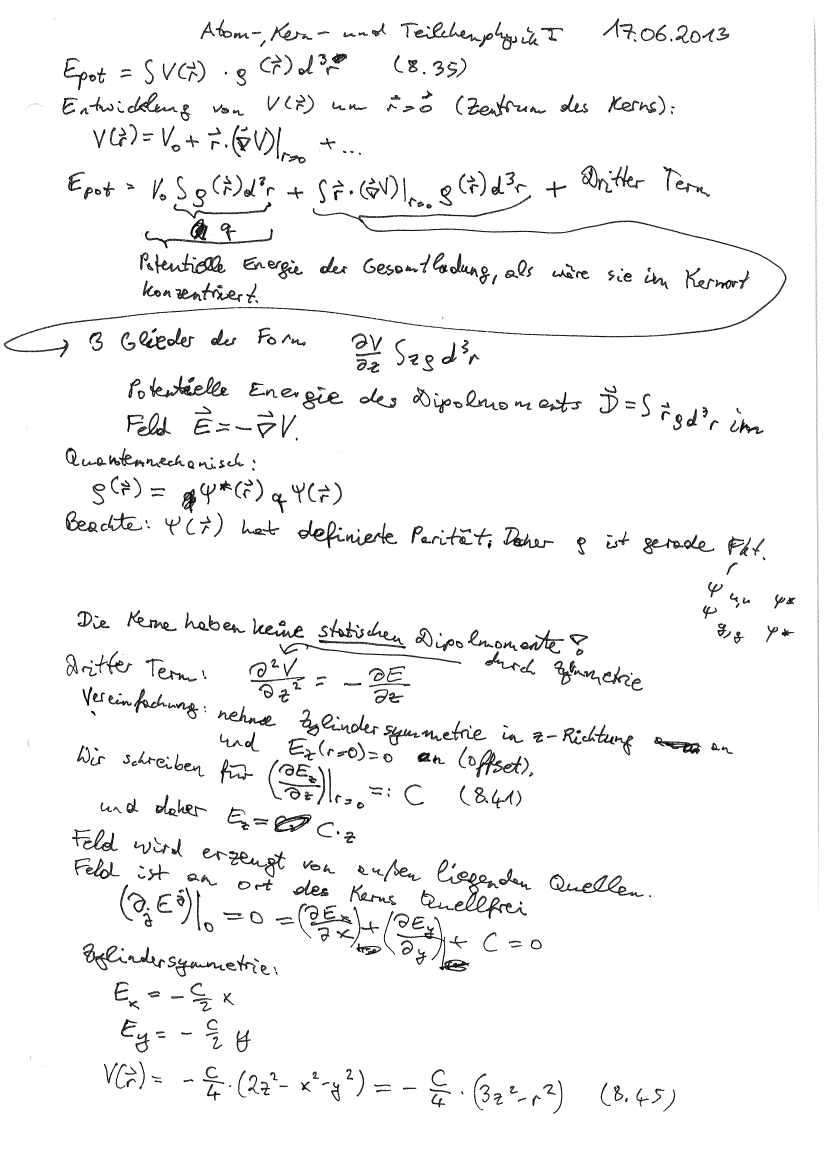 Atom-, Kern- und Teilchenphysik I 17.06.2013
E_pot = ∫V(r⃗) · ρ(r⃗) d³r (8.35)
Entwicklung von V(r⃗) um r⃗=0⃗ (Zentrum des Kerns):
V(r⃗) = V₀ + r⃗·(∇⃗V)|_{r=0} + ...
E_pot = V₀ ∫ρ(r⃗)d³r + ∫r⃗·(∇⃗V)|_{r=0} ρ(r⃗)d³r + Dritter Term
q
Potentielle Energie der Gesamtladung, als wäre sie im Kernort
konzentriert.
→ 3 Glieder der Form ∂V/∂z ∫zρd³r
Potentielle Energie des Dipolmoments D⃗ = ∫r⃗ρd³r im
Feld E⃗ = -∇⃗V.
Quantenmechanisch:
ρ(r⃗) = ψ*(r⃗) q ψ(r⃗)
Beachte: ψ(r⃗) hat definierte Parität. Daher ρ ist gerade Fkt.
ψ u,u ψ*
ψ g,g ψ*
Die Kerne haben keine statischen Dipolmomente!
durch Symmetrie
Dritter Term: ∂²V/∂z² = -∂E/∂z
Vereinfachung: nehme Zylindersymmetrie in z-Richtung an
und E_z(r=0)=0 an (offset).
Wir schreiben für (∂E_z/∂z)|_{r=0} =: C (8.41)
und daher E_z = C·z
Feld wird erzeugt von außen liegenden Quellen.
Feld ist an ort des Kerns Quellfrei
(∂_j E^j)|₀ = 0 = (∂E_x/∂x) + (∂E_y/∂y) + C = 0
Zylindersymmetrie:
E_x = -C/2 x
E_y = -C/2 y
V(r⃗) = -C/4·(2z²-x²-y²) = -C/4·(3z²-r²) (8.45)